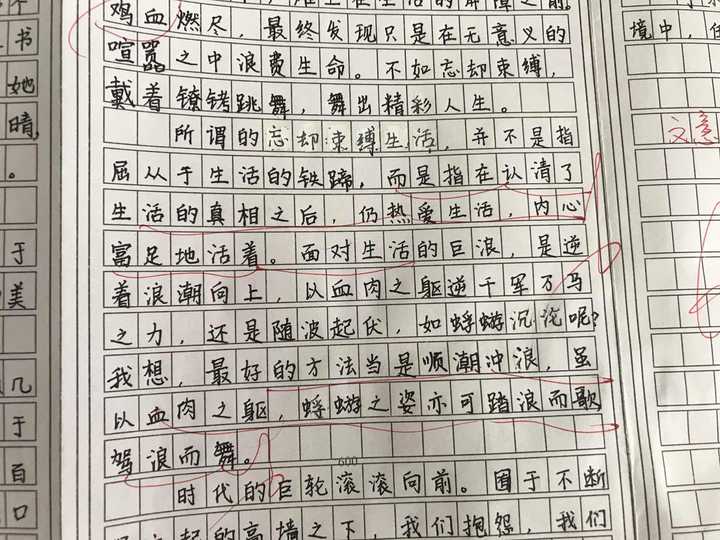 鸡血燃尽，最终发现只是在无意义的
喧嚣之中浪费生命。不如忘却束缚，
戴着镣铐跳舞，舞出精彩人生。
所谓的忘却束缚生活，并不是指
屈从于生活的铁蹄，而是指在认清了
生活的真相之后，仍热爱生活，内心
富足地活着。面对生活的巨浪，是逆
着浪潮向上，以血肉之躯逆千军万马
之力，还是随波起伏，如蜉蝣沉沦呢？
我想，最好的方法当是顺潮冲浪，虽
以血肉之躯，蜉蝣之姿亦可踏浪而歌
驾浪而舞。
600
时代的巨轮滚滚向前。囿于不断
起的高墙之下，我们抱怨，我们
书
她
晴，
。
于
美
几
于
百
口
境中，
文意